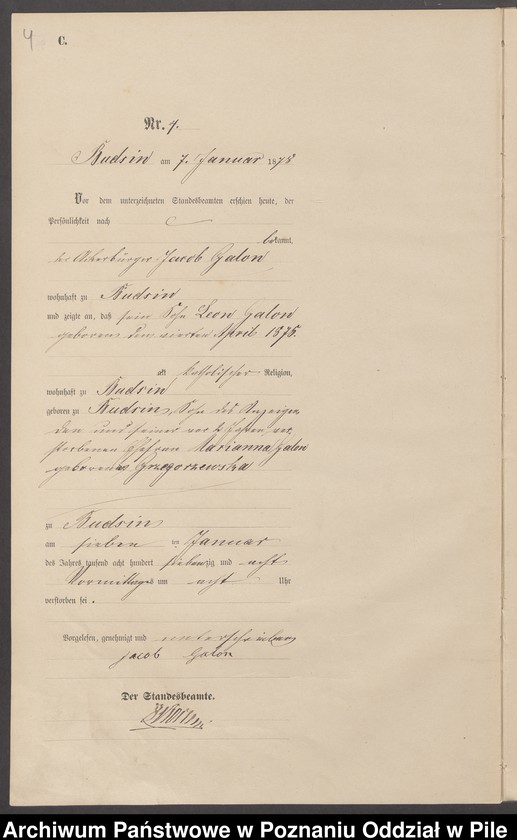 4
C.
Nr. 4.
Budsin am 7. Januar 1878
Vor dem unterzeichneten Standesbeamten erschien heute, der
Persönlichkeit nach
bekannt,
der Ackerbürger Jacob Galon
wohnhaft zu Budsin
und zeigte an, daß sein Sohn Leon Galon
geboren den vierten April 1875.
alt katholischer Religion,
wohnhaft zu Budsin
geboren zu Budsin, Sohn des Anzeigen
den und seiner vor 2 Jahren ver
storbenen Ehefrau Marianna Galon
geborenen Grzegorzewska
zu Budsin
am sieben ten Januar
des Jahres tausend acht hundert siebenzig und acht
Vormittags um acht Uhr
verstorben sei.
Vorgelesen, genehmigt und unterschrieben
Jacob Galon
Der Standesbeamte.
Archiwum Państwowe w Poznaniu Oddział w Pile